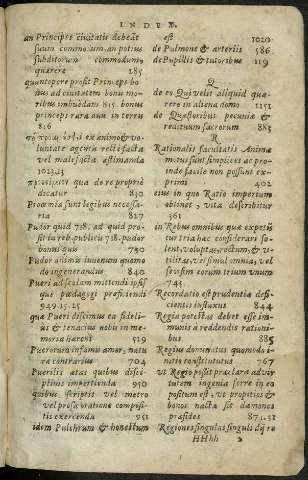 INDEX.
an Principes civitatis debeāt
suum commodum, an potius
subditorum commodum
quærere 285
quantopere prosit Princeps bo-
nus ad civitatem bonis mo-
ribus imbuēdam 815. bonus
princeps rara avis in terris
816
ex animo & vo-
luntate agentis rectè facta
vel malefacta æstimanda
1023.25
qua de re propriè
dicatur 840
Proœmia sunt legibus necessa-
ria 827
Pudor quid 718. ad quid pro-
sit in rep. publicis 718. pudor
bonus quis 730
Pudor animis iuvenum quomo
do ingenerandus 840
Pueri ad scholam mittendi ipsi
que pædagogi præficiendi
949.15.25
qua Pueri discimus ea fideli-
us & tenacius nobis in me-
moria hærent 529
Puerorum infamis amor, natu
ræ contrarius 704
Puerilis ætas quibus disci-
plinis impertienda 950
quibus scriptis vel metro
vel prosa oratione compositis
exercenda 951
idem Pulchrum & honestum
est 1020
de Pulmone & arteriis 586
de Pupillis & tutoribus 119
Q
de eo Qui velit aliquid quæ-
rere in alieno domo 1151
de Quæstoribus pecuniæ &
redituum sacrorum 883
R
Rationalis facultatis Animæ
motus sunt simplices ac pro-
inde facile non possunt ex-
primi 402
eius in quo Ratio imperium
obtinet, vita describitur
361
in Rebus omnibus quæ expetū
tur tria hæc considerari so-
lent, voluptas, rectum, & u-
tilitas, vel simul omnia, vel
seorsim eorum trium unum
745
Recordatio est prudentia defi-
cientis influxus 844
Regia potestas debet esse im-
munis à reddendis rationi-
bus 885
Regius dominatus quomodo i-
nitio constitutus 767
ut Regio posset præclara advir
tutem ingenia ferre in eo
positum est, ut propitios &
bonos nacta sit dæmones
præsides 871.1.31
Regiones singulas singuli dij re
HHhh 2